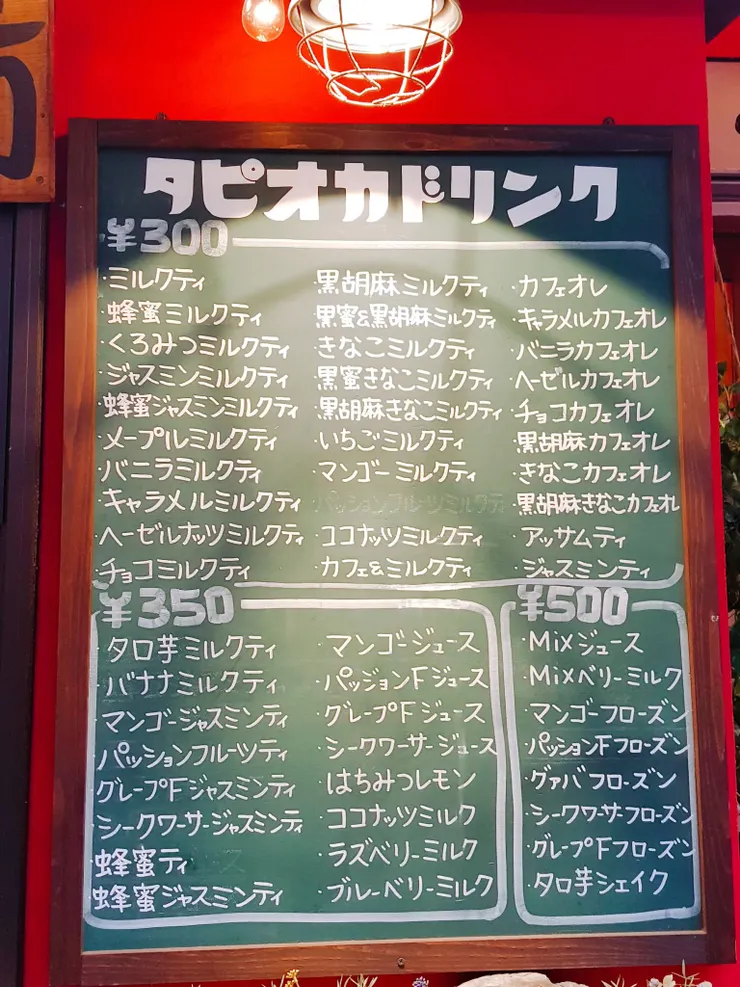 タピオカドリンク
¥300
・ミルクティ
・蜂蜜ミルクティ
・くろみつミルクティ
・ジャスミンミルクティ
・蜂蜜ジャスミンミルクティ
・メープルミルクティ
・バニラミルクティ
・キャラメルミルクティ
・ヘーゼルナッツミルクティ
・チョコミルクティ
・黒胡麻ミルクティ
・黒蜜&黒胡麻ミルクティ
・きなこミルクティ
・黒蜜きなこミルクティ
・黒胡麻きなこミルクティ
・いちごミルクティ
・マンゴーミルクティ
・パッションフルーツミルクティ
・ココナッツミルクティ
・カフェ&ミルクティ
・カフェオレ
・キャラメルカフェオレ
・バニラカフェオレ
・ヘーゼルカフェオレ
・チョコカフェオレ
・黒胡麻カフェオレ
・きなこカフェオレ
・黒胡麻きなこカフェオレ
・アッサムティ
・ジャスミンティ
¥350
・タロ芋ミルクティ
・バナナミルクティ
・マンゴージャスミンティ
・パッションフルーツティ
・グレープFジャスミンティ
・シークワーサージャスミンティ
・蜂蜜ティ
・蜂蜜ジャスミンティ
・マンゴージュース
・パッションFジュース
・グレープFジュース
・シークワーサージュース
・はちみつレモン
・ココナッツミルク
・ラズベリーミルク
・ブルーベリーミルク
¥500
・Mixジュース
・Mixベリーミルク
・マンゴーフローズン
・パッションFフローズン
・グァバフローズン
・シークワーサフローズン
・グレープFフローズン
・タロ芋シェイク